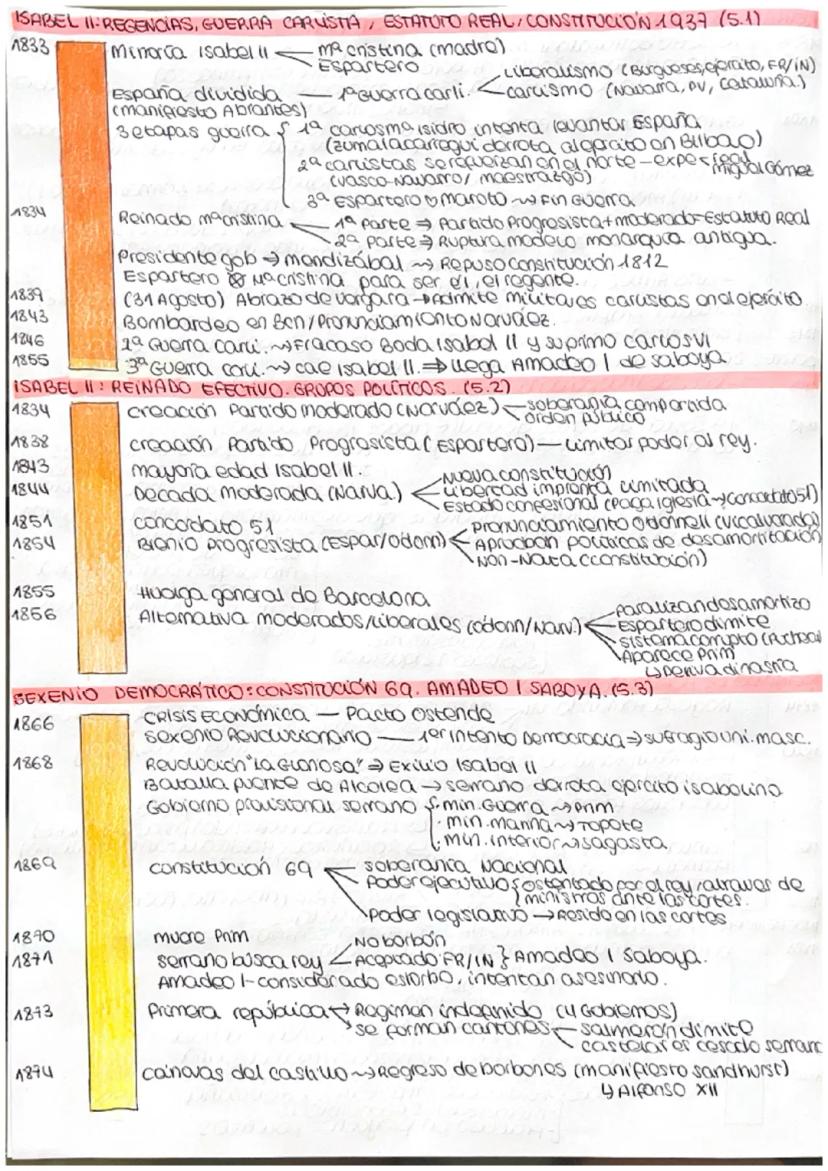 ISABEL II: REGENCIAS, GUERRA CARLISTA, ESTATUTO REAL, CONSTITUCIÓN 1937 (5.1)
1833 Minoría Isabel II Mª Cristina (madre)
Espartero
España dividida — 1ª Guerra carli. Liberalismo (Burgueses, ejército, FR/IN)
carlismo (Navarra, PV, Cataluña)
(manifiesto Abrantes)
3 etapas guerra { 1ª carlosmª isidro intenta levantar España
(zumalacárregui derrota al ejército en Bilbao)
2ª carlistas se refuerzan en el norte – expe real
Miguel Gómez
(vasco-navarro/ maestrazgo)
3ª Espartero Maroto → Fin Guerra
1834 Reinado Mª cristina 1ª Parte ⇒ Partido Progresista + moderado – Estatuto Real
2ª parte ⇒ Ruptura modelo monarquía antigua.
Presidente gob → mendizábal → Repuso constitución 1812
Espartero Mª cristina para ser él, el regente.
1839 (31 Agosto) Abrazo de vergara → Admite militares carlistas en el ejército
1843 Bombardeo en Bcn/Pronunciamiento Narváez.
1846 2ª Guerra carli. → Fracaso Boda Isabel II y su primo carlos VI
1855 3ª Guerra carli. → cae Isabel II. ⇒ llega Amadeo I de saboya.
ISABEL II: REINADO EFECTIVO. GRUPOS POLÍTICOS. (5.2)
1834 creación Partido moderado (Narváez) soberanía compartida
orden público
1838 creación Partido Progresista (Espartero) — Limitar poder al rey.
1843 mayoría edad Isabel II.
1844 Década moderada (Narva.) Nueva constitución
Libertad imprenta limitada
Estado confesional (paga iglesia → concordato 51)
1851 concordato 51
1854 Bienio progresista (Espar/Odonn) Pronunciamiento Odonnell (vicalvarada)
Aprueban políticas de desamortización
Non-Nata (constitución)
1855 Huelga general de Barcelona
1856 Alternativa moderados/Liberales (odonn/Narv.) Paralizan desamortiza
Espartero dimite
sistema corrupto (Pucherazo
Aparece Prim
↳ Deriva dinastía
SEXENIO DEMOCRÁTICO: CONSTITUCIÓN 69. AMADEO I SABOYA. (5.3)
1866 CRISIS ECONÓMICA — Pacto Ostende
Sexenio Revolucionario — 1er Intento Democracia ⇒ sufragio uni. masc.
1868 Revolución "La Gloriosa" ⇒ Exilio Isabel II
Batalla puente de Alcolea → serrano derrota ejército isabelino
Gobierno provisional serrano { min. Guerra → Prim
min. marina → Topete
min. interior → sagasta.
1869 constitución 69 soberanía Nacional
Poder ejecutivo { ostentado por el rey, a través de
ministros ante las cortes.
Poder legislativo → Reside en las cortes
1870 muere Prim No borbón
1871 serrano busca rey Aceptado FR/IN } Amadeo I Saboya.
Amadeo I – considerado estorbo, intentan asesinarlo.
1873 Primera república Régimen indefinido (4 Gobiernos)
se forman cantones salmerón dimite
castelar es cesado serrano
1874 cánovas del castillo → Regreso de borbones (manifiesto sandhurst)
↳ Alfonso XII